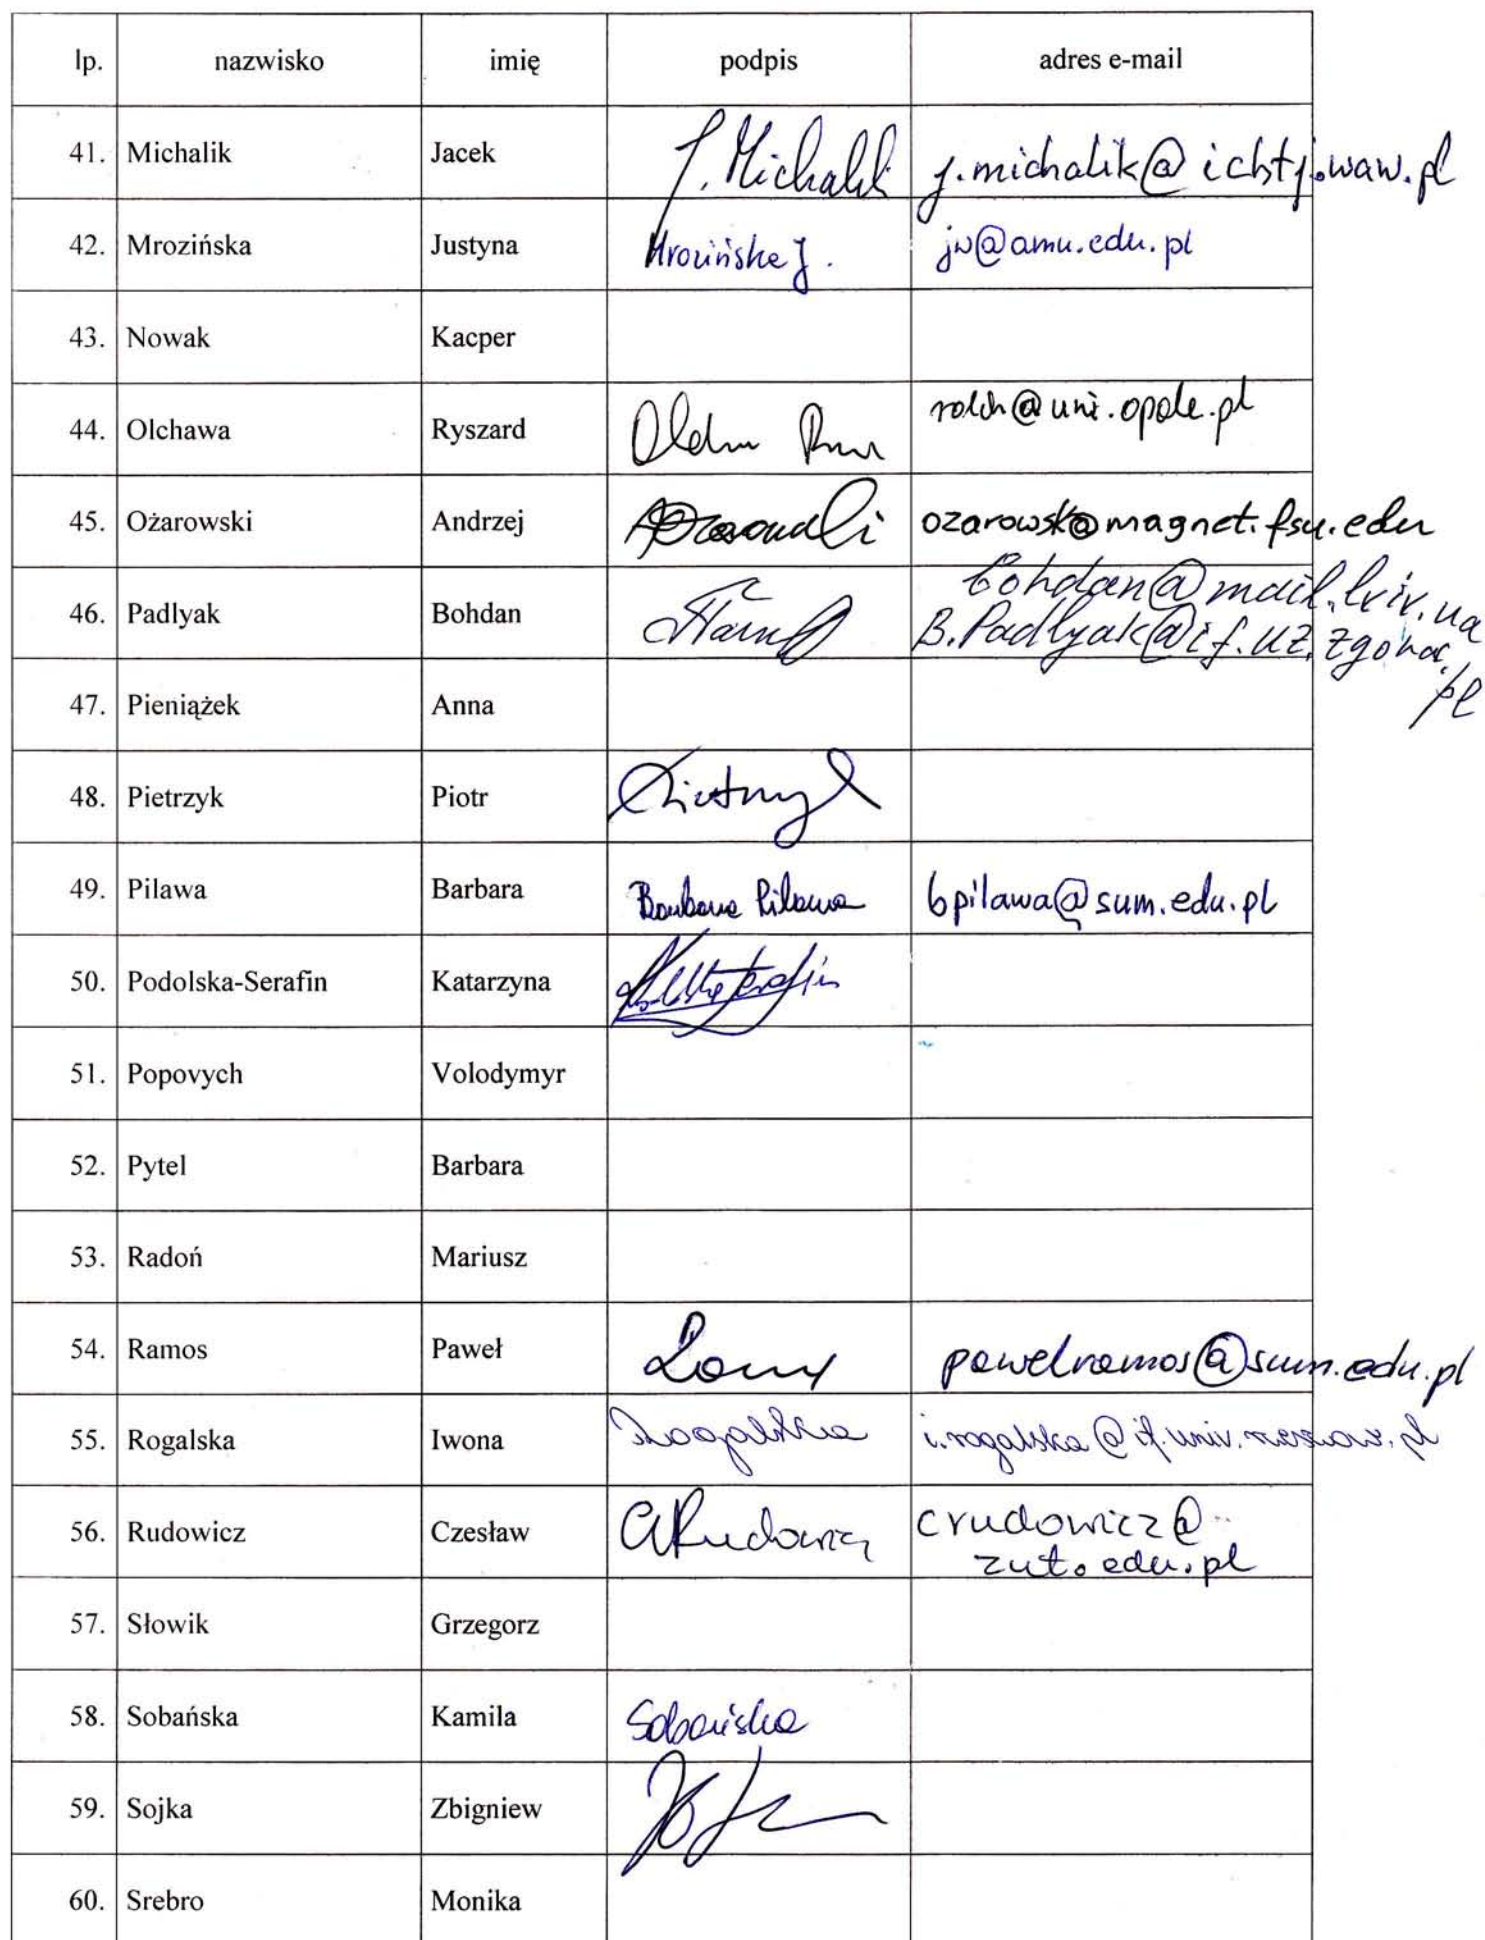 lp. nazwisko imię podpis adres e-mail
41. Michalik Jacek J. Michalik j.michalik@ichtj.waw.pl
42. Mrozińska Justyna Mrozińska J. jw@amu.edu.pl
43. Nowak Kacper
44. Olchawa Ryszard rolch@uni.opole.pl
45. Ożarowski Andrzej ozarowsk@magnet.fsu.edu
bohdan@mail.lviv.ua
46. Padlyak Bohdan B.Padlyak@if.uz.zgora.pl
47. Pieniążek Anna
48. Pietrzyk Piotr Pietrzyk
49. Pilawa Barbara Barbara Pilawa bpilawa@sum.edu.pl
50. Podolska-Serafin Katarzyna
51. Popovych Volodymyr
52. Pytel Barbara
53. Radoń Mariusz
54. Ramos Paweł pawelramos@sum.edu.pl
55. Rogalska Iwona Rogalska i.rogalska@if.univ.rzeszow.pl
56. Rudowicz Czesław CRudowicz crudowicz@
zut.edu.pl
57. Słowik Grzegorz
58. Sobańska Kamila Sobańska
59. Sojka Zbigniew
60. Srebro Monika